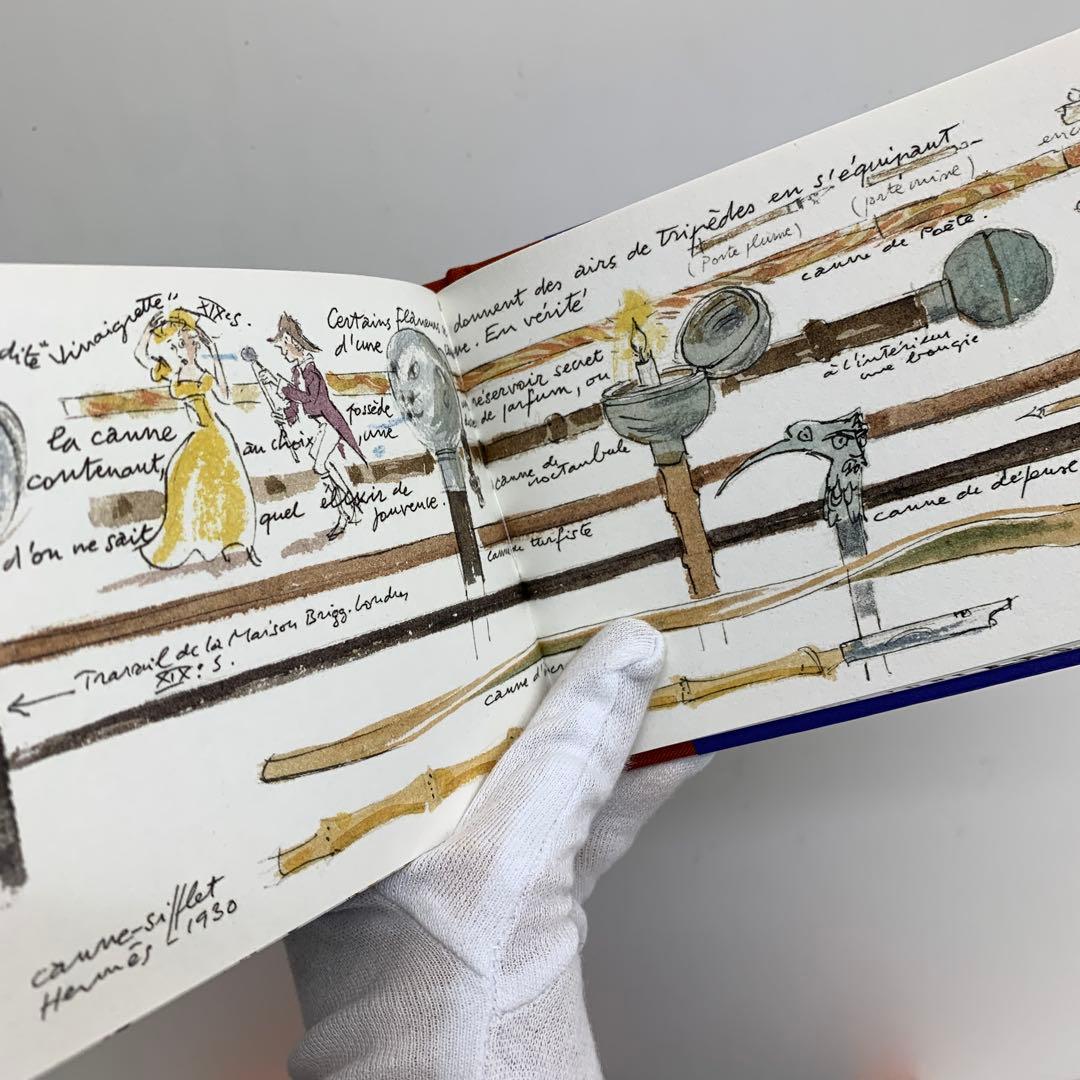 dite "Vinaigrette"
XIXe S.
la canne
contenant,
d'on ne sait
quel élixir de
jouvence.
au choix
Certains flaneurs
d'une
possède
, une
Travail de la Maison Brigg. Londres
XIXe S.
canne-sifflet
Hermès 1930
donnent des airs de tripèdes en s'équipant
En vérité
réservoir secret
de parfum, ou
(porte plume)
(porte mine)
canne de Poète.
à l'intérieur
une bougie
canne de
noctambule
canne de turfiste
canne de défense
canne d'